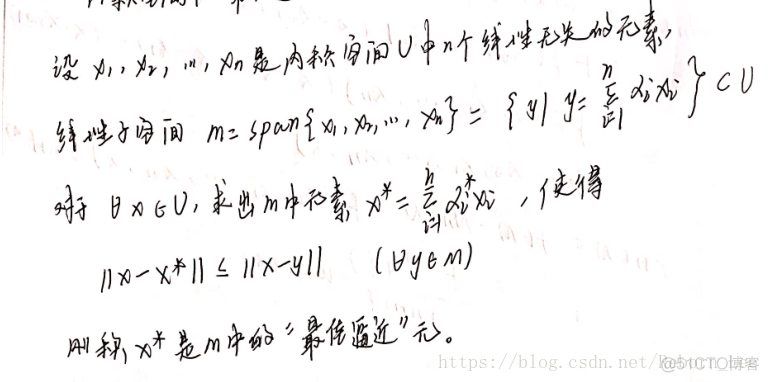 设 x₁, x₂, …, xₙ 是内积空间 U 中 n 个线性无关的元素,
线性子空间 m = span{x₁, x₂, …, xₙ} = { y | y = ∑ᵢ₌₁ⁿ αᵢxᵢ } ⊂ U
对于 ∀x∈U, 求出 m 中元素 x* = ∑ᵢ₌₁ⁿ αᵢ*xᵢ , 使得
||x-x*|| ≤ ||x-y|| (∀y∈m)
则称, x* 是 m 中的“最佳逼近”元。
https://blog.csdn.net/
@51CTO博客